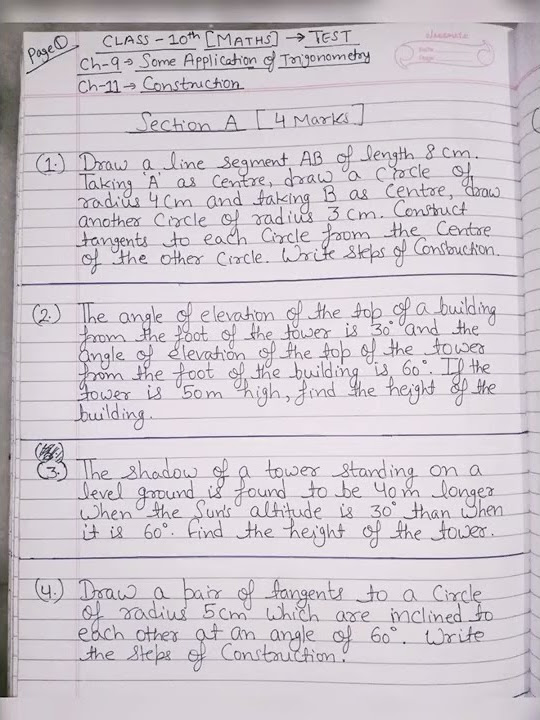 Page ①
CLASS - 10th [MATHS] → TEST
Ch-9 → Some Application of Trigonometry
Ch-11 → Construction
classmate
Date
Page
Section A [4 Marks]
(1.) Draw a line segment AB of length 8 cm.
Taking 'A' as centre, draw a circle of
radius 4 cm and taking B as Centre, draw
another Circle of radius 3 cm. Construct
tangents to each Circle from the Centre
of the other Circle. Write steps of Consbuction.
(2.) The angle of elevation of the top of a building
from the foot of the tower is 30° and the
angle of elevation of the top of the tower
from the foot of the building is 60°. If the
tower is 50m high, find the height of the
building.
(3.) The shadow of a tower standing on a
level ground is found to be 40m longer
when the Sun's altitude is 30° than when
it is 60°. Find the height of the tower.
(4.) Draw a pair of tangents to a Circle
of radius 5cm which are inclined to
each other at an angle of 60°. Write
the steps of Construction.